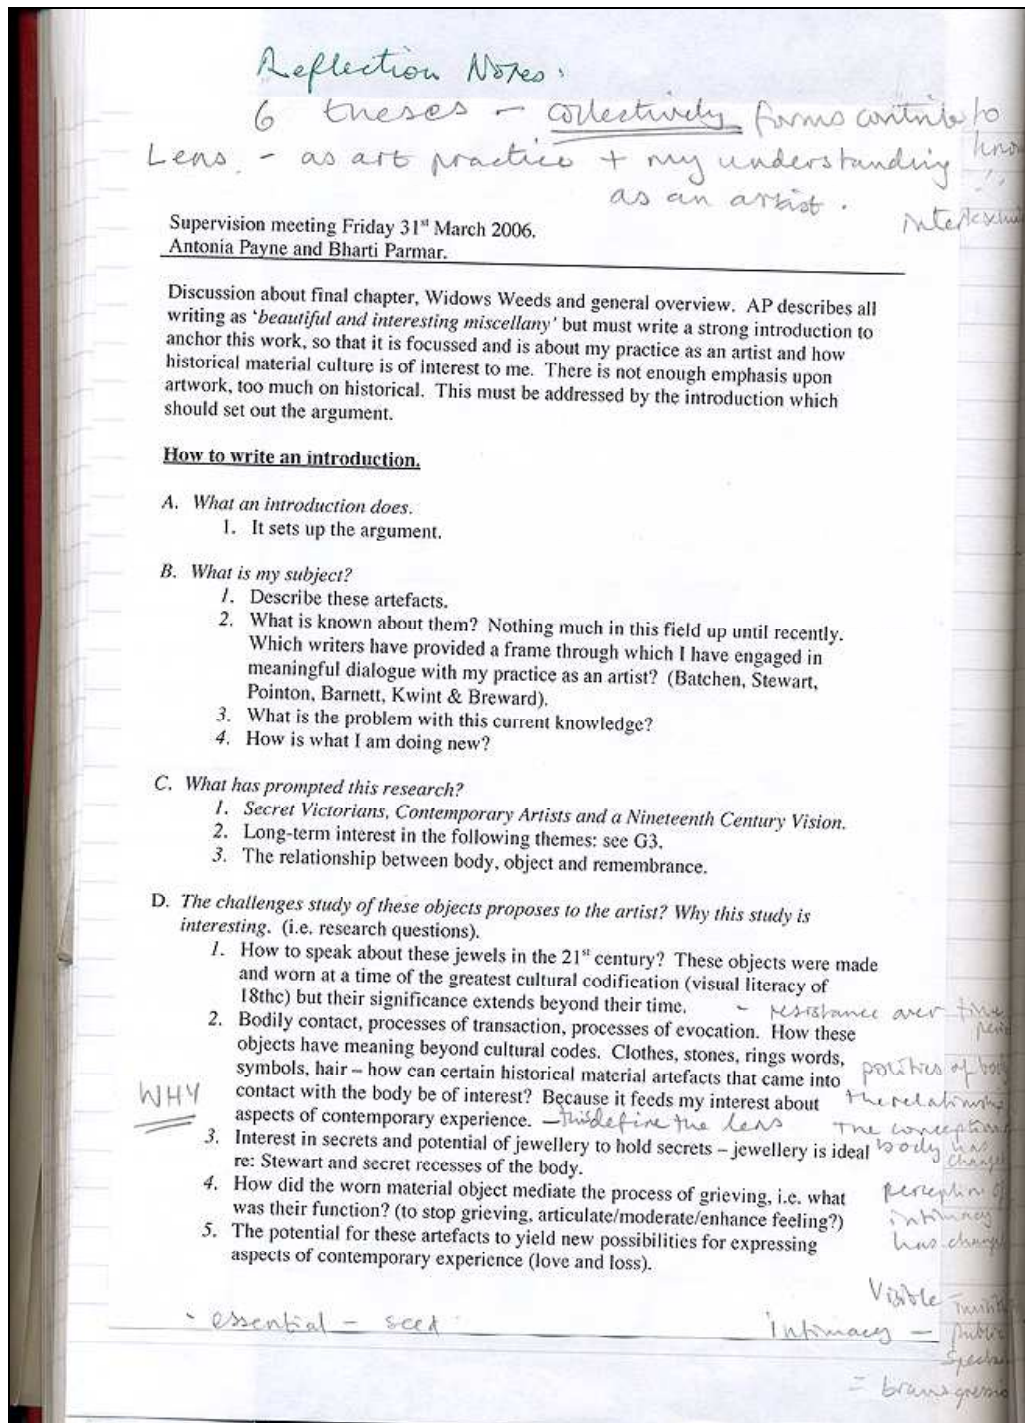 Reflection Notes:
6 theses – collectively forms contribute to
Lens. – as art practice + my understanding
as an artist.
Supervision meeting Friday 31st March 2006.
Antonia Payne and Bharti Parmar.
Discussion about final chapter, Widows Weeds and general overview. AP describes all
writing as 'beautiful and interesting miscellany' but must write a strong introduction to
anchor this work, so that it is focussed and is about my practice as an artist and how
historical material culture is of interest to me. There is not enough emphasis upon
artwork, too much on historical. This must be addressed by the introduction which
should set out the argument.
How to write an introduction.
A. What an introduction does.
1. It sets up the argument.
B. What is my subject?
1. Describe these artefacts.
2. What is known about them? Nothing much in this field up until recently.
Which writers have provided a frame through which I have engaged in
meaningful dialogue with my practice as an artist? (Batchen, Stewart,
Pointon, Barnett, Kwint & Breward).
3. What is the problem with this current knowledge?
4. How is what I am doing new?
C. What has prompted this research?
1. Secret Victorians, Contemporary Artists and a Nineteenth Century Vision.
2. Long-term interest in the following themes: see G3.
3. The relationship between body, object and remembrance.
D. The challenges study of these objects proposes to the artist? Why this study is
interesting. (i.e. research questions).
1. How to speak about these jewels in the 21st century? These objects were made
and worn at a time of the greatest cultural codification (visual literacy of
18thc) but their significance extends beyond their time. – resistance over time
2. Bodily contact, processes of transaction, processes of evocation. How these
objects have meaning beyond cultural codes. Clothes, stones, rings words,
symbols, hair – how can certain historical material artefacts that came into
politics of body
WHY
contact with the body be of interest? Because it feeds my interest about
the relationship
aspects of contemporary experience. – this define the lens
The conception
3. Interest in secrets and potential of jewellery to hold secrets – jewellery is ideal
body has
changed
re: Stewart and secret recesses of the body.
4. How did the worn material object mediate the process of grieving, i.e. what
perception of
was their function? (to stop grieving, articulate/moderate/enhance feeling?)
intimacy
5. The potential for these artefacts to yield new possibilities for expressing
has changed
aspects of contemporary experience (love and loss).
Visible –
essential – seed
Intimacy – public